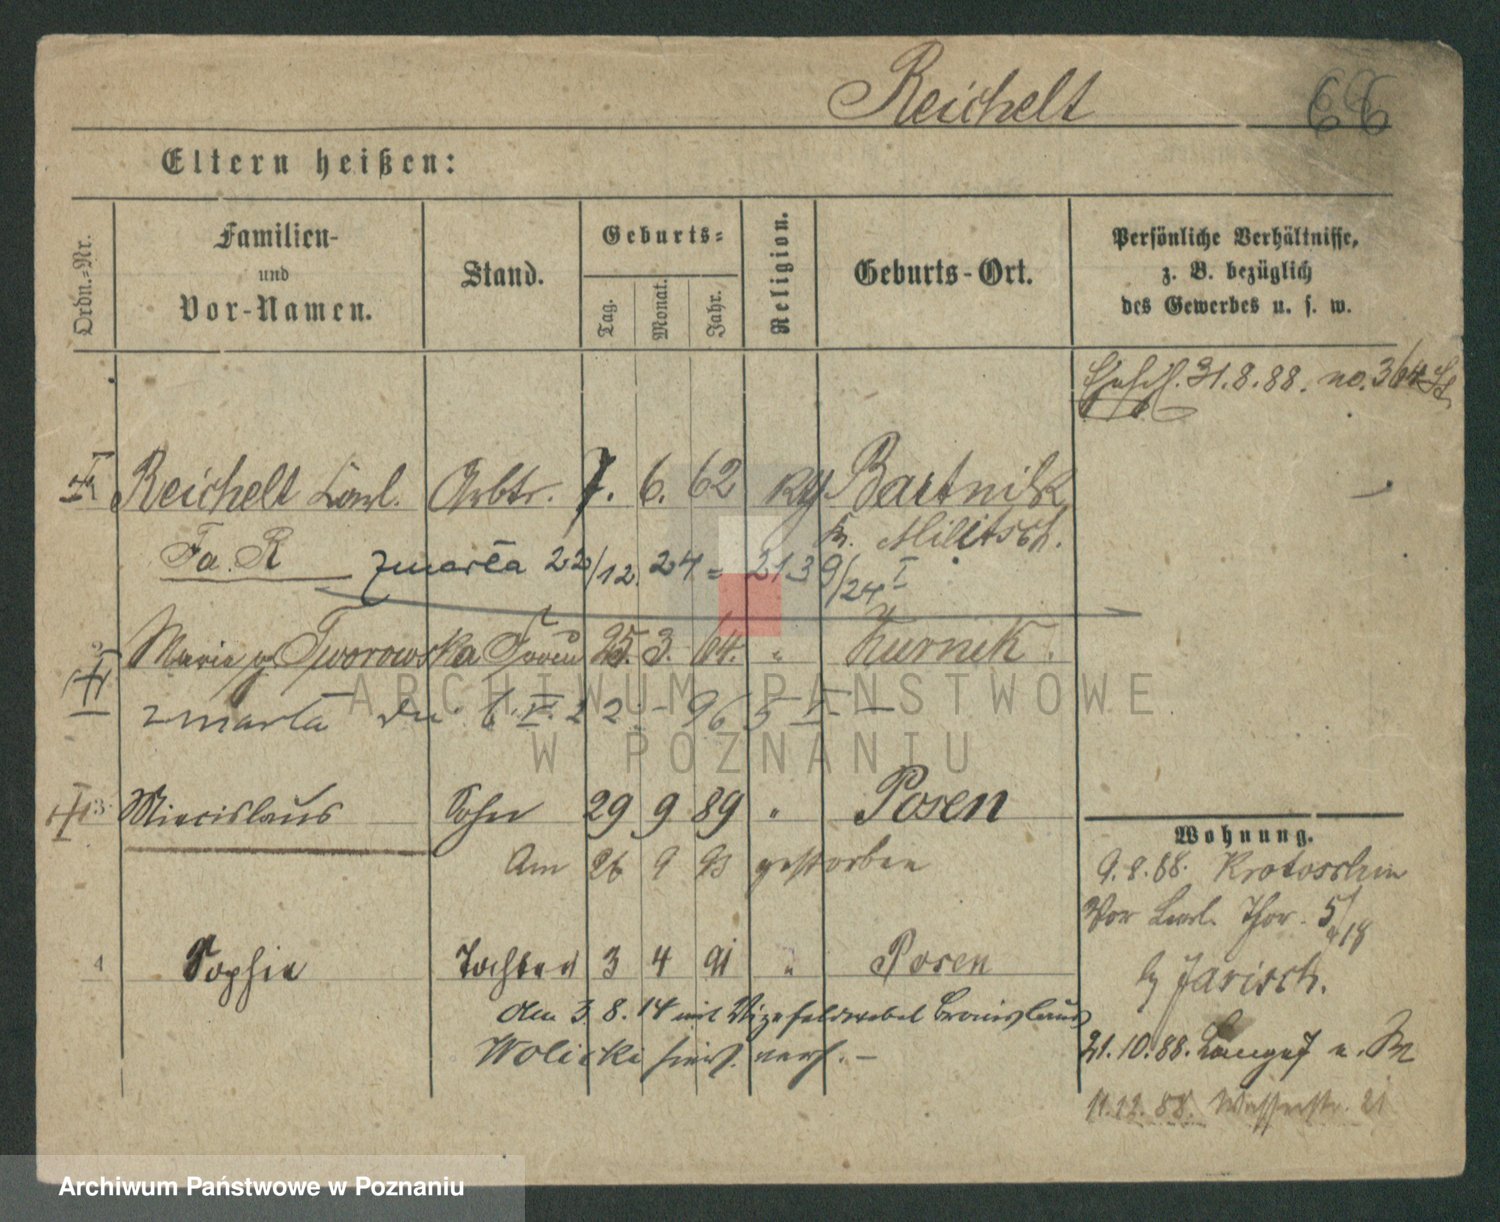 Reichelt 66
Eltern heißen:
Ordn.-Nr.
Familien-
und
Vor-Namen.
Stand.
Geburts-
Tag.
Monat.
Jahr.
Religion.
Geburts-Ort.
Persönliche Verhältnisse,
z. B. bezüglich
des Gewerbes u. s. w.
31.8.88. no. 364
Reichelt Carl. Arbtr. 7. 6. 62 Bartnik
Kr. Militsch.
Fa. R zmarła 22/12. 24 = 2139/24 I
Marie g Tworowska Frau 25. 3. 64. " Kurnik.
zmarła dn. 6. V. 22. - 965 V -
3. Miecislaus Sohn 29 9 89 " Posen
Am 26 9 93 gestorben
4 Sophie Tochter 3 4 91 " Posen
Am 3. 8. 14 mit Vizefeldwebel Bronislaus
Wolicki hier verh. -
Wohnung.
9.8.88. Krotoschin
Vor Berl. Thor. 5/18
b/ Jarisch.
21.10.88. Langestr
11.12.88. Wasserstr. 21
ARCHIWUM PAŃSTWOWE
W POZNANIU
Archiwum Państwowe w Poznaniu